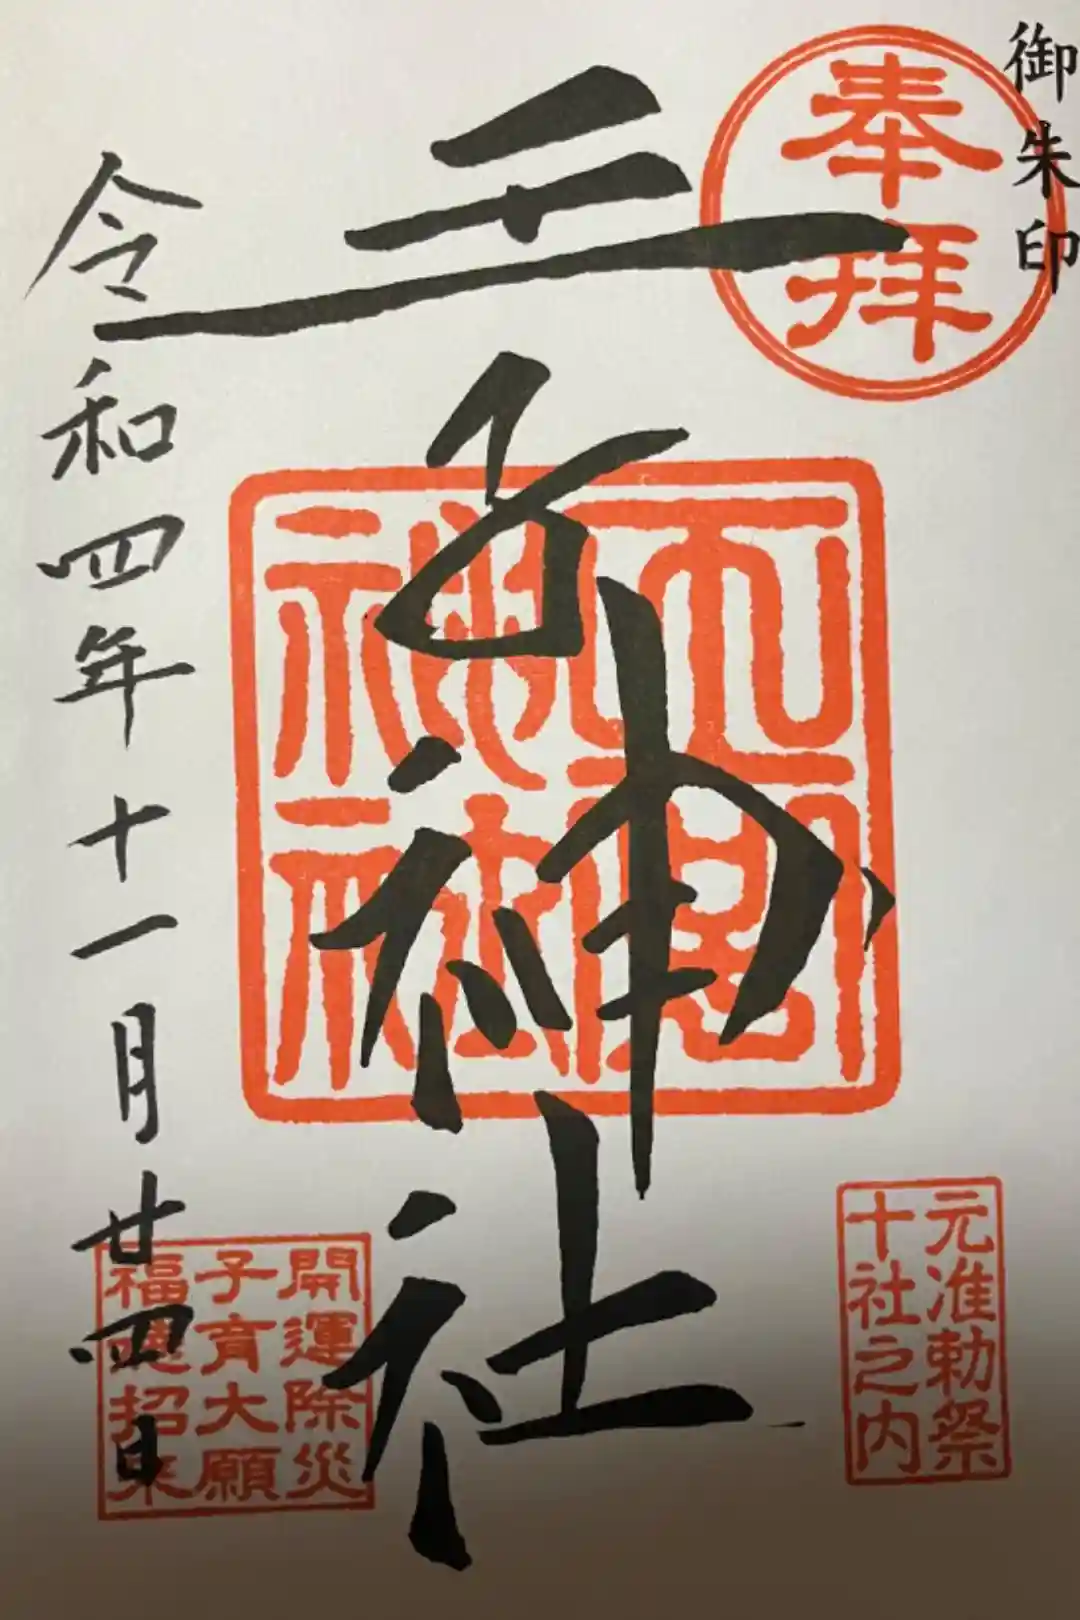 御朱印
奉拝
王子神社
元准勅祭
十社之内
開運除災
子育大願
福徳招来
令和四年十一月廿四日